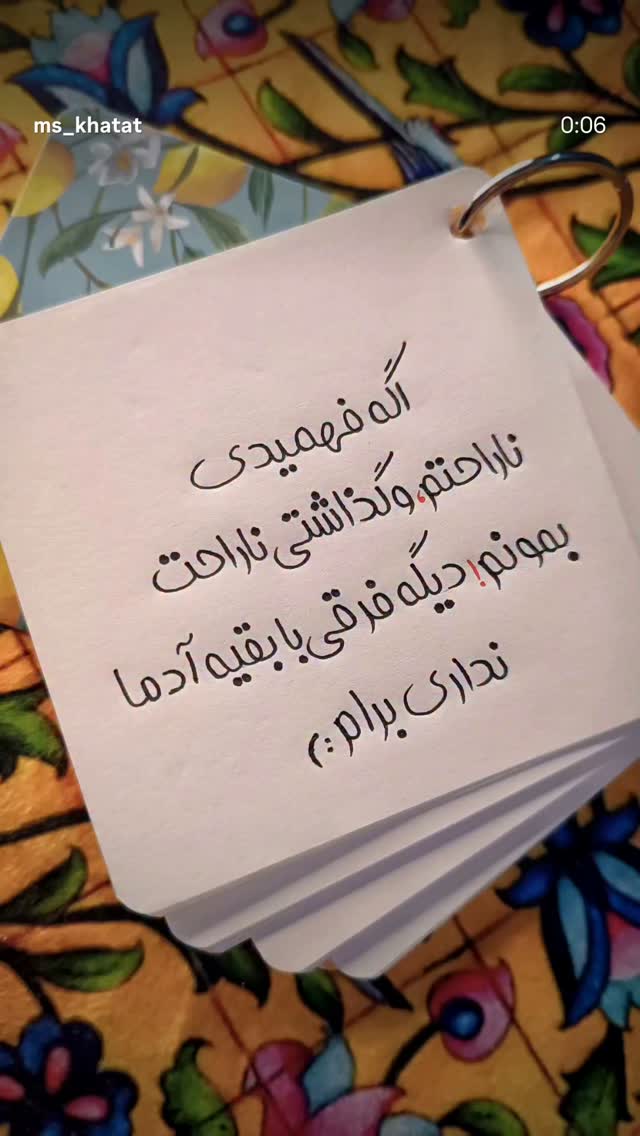 ms_khatat
0:06
اگه فهمیدی
ناراحتم،وگذاشتی ناراحت
بمونم!دیگه فرقی با بقیه آدما
نداری برام:)